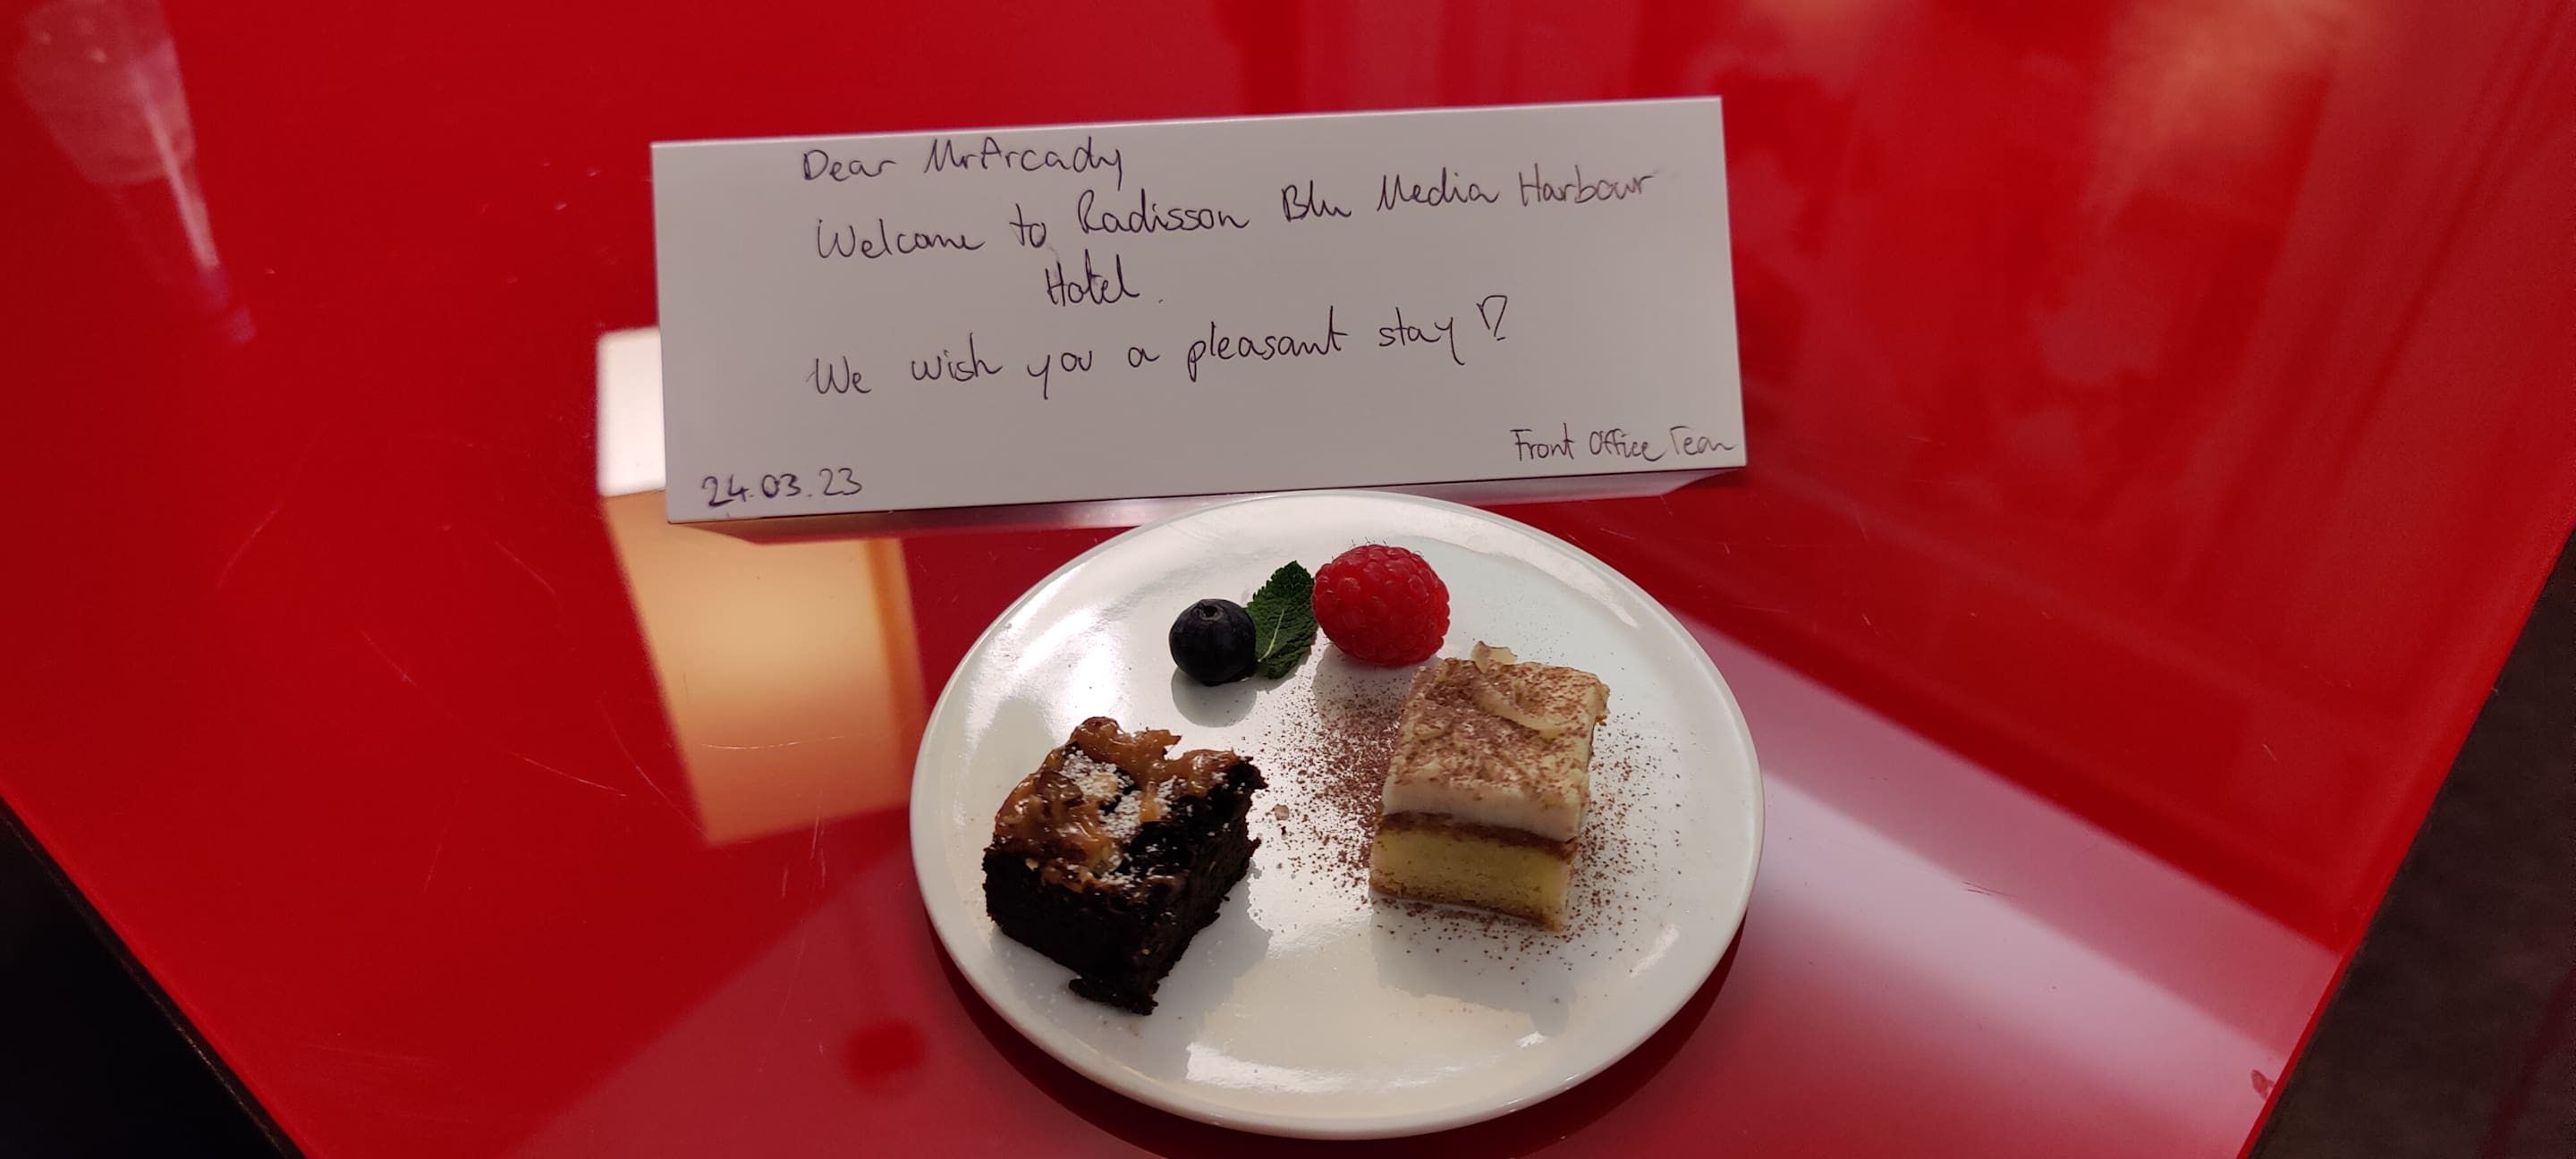 Dear Mr Arcady
Welcome to Radisson Blu Media Harbour
Hotel.
We wish you a pleasant stay!
Front Office Team
24.03.23